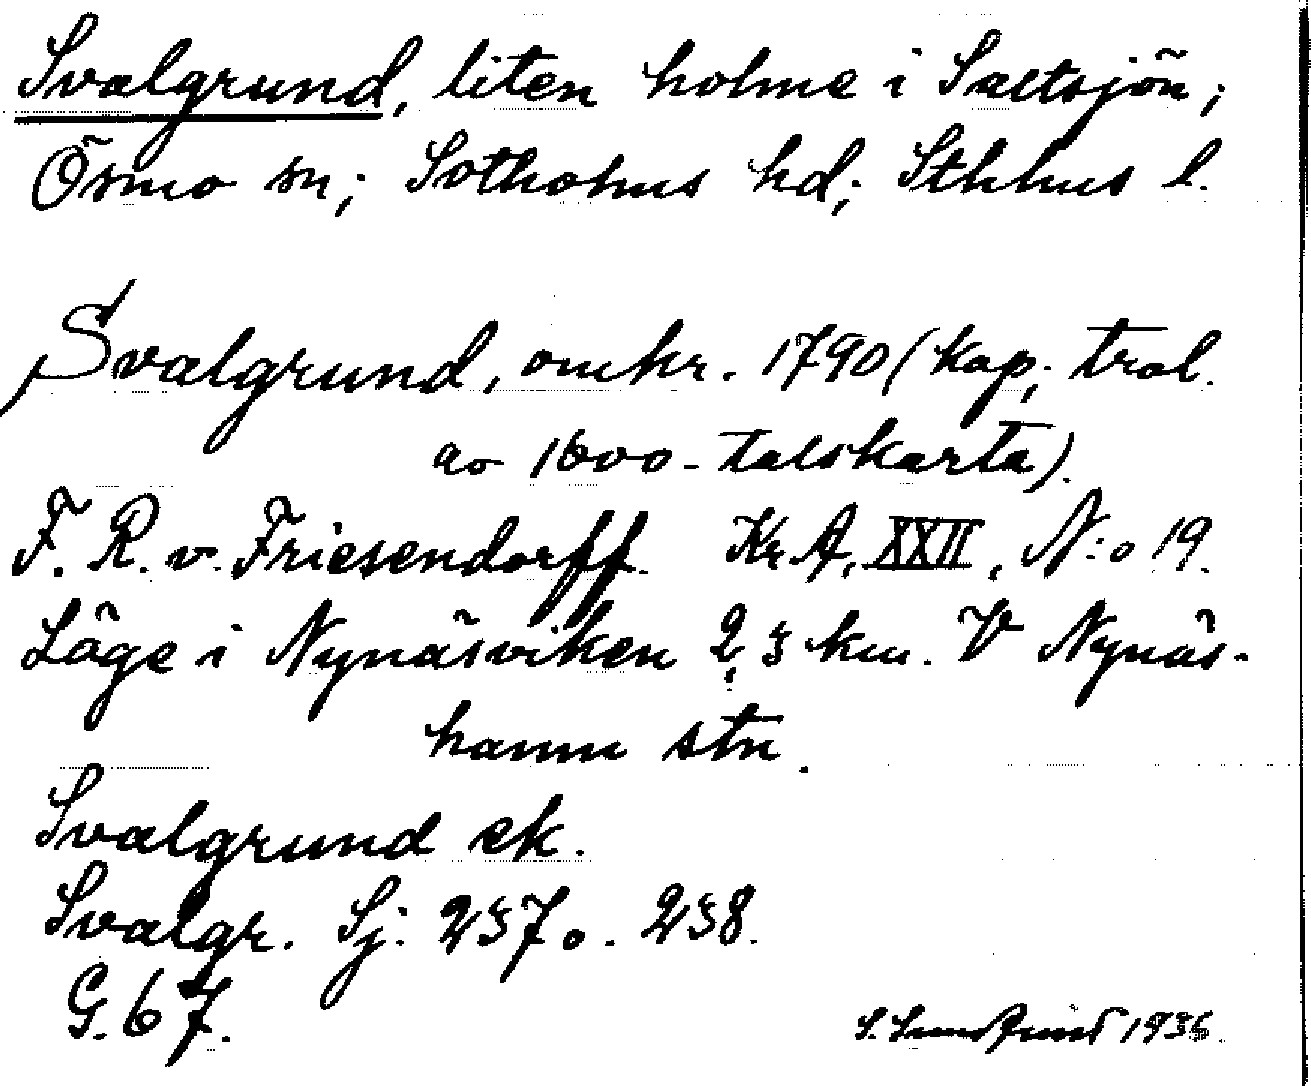 Svalgrund, liten holme i Saltsjön;
Ösmo sn; Sotholms hd; Sthlms l.
Svalgrund, omkr. 1790 (kap, trol.
av 1600-talskarta).
F. R. v. Friesendorff. Kr. A, XXII, N:o 19.
Läge i Nynäsviken 2,3 km. V Nynäs-
hamn stn.
Svalgrund ek.
Svalgr. Sj. 237 o. 238.
G. 67.
1936.